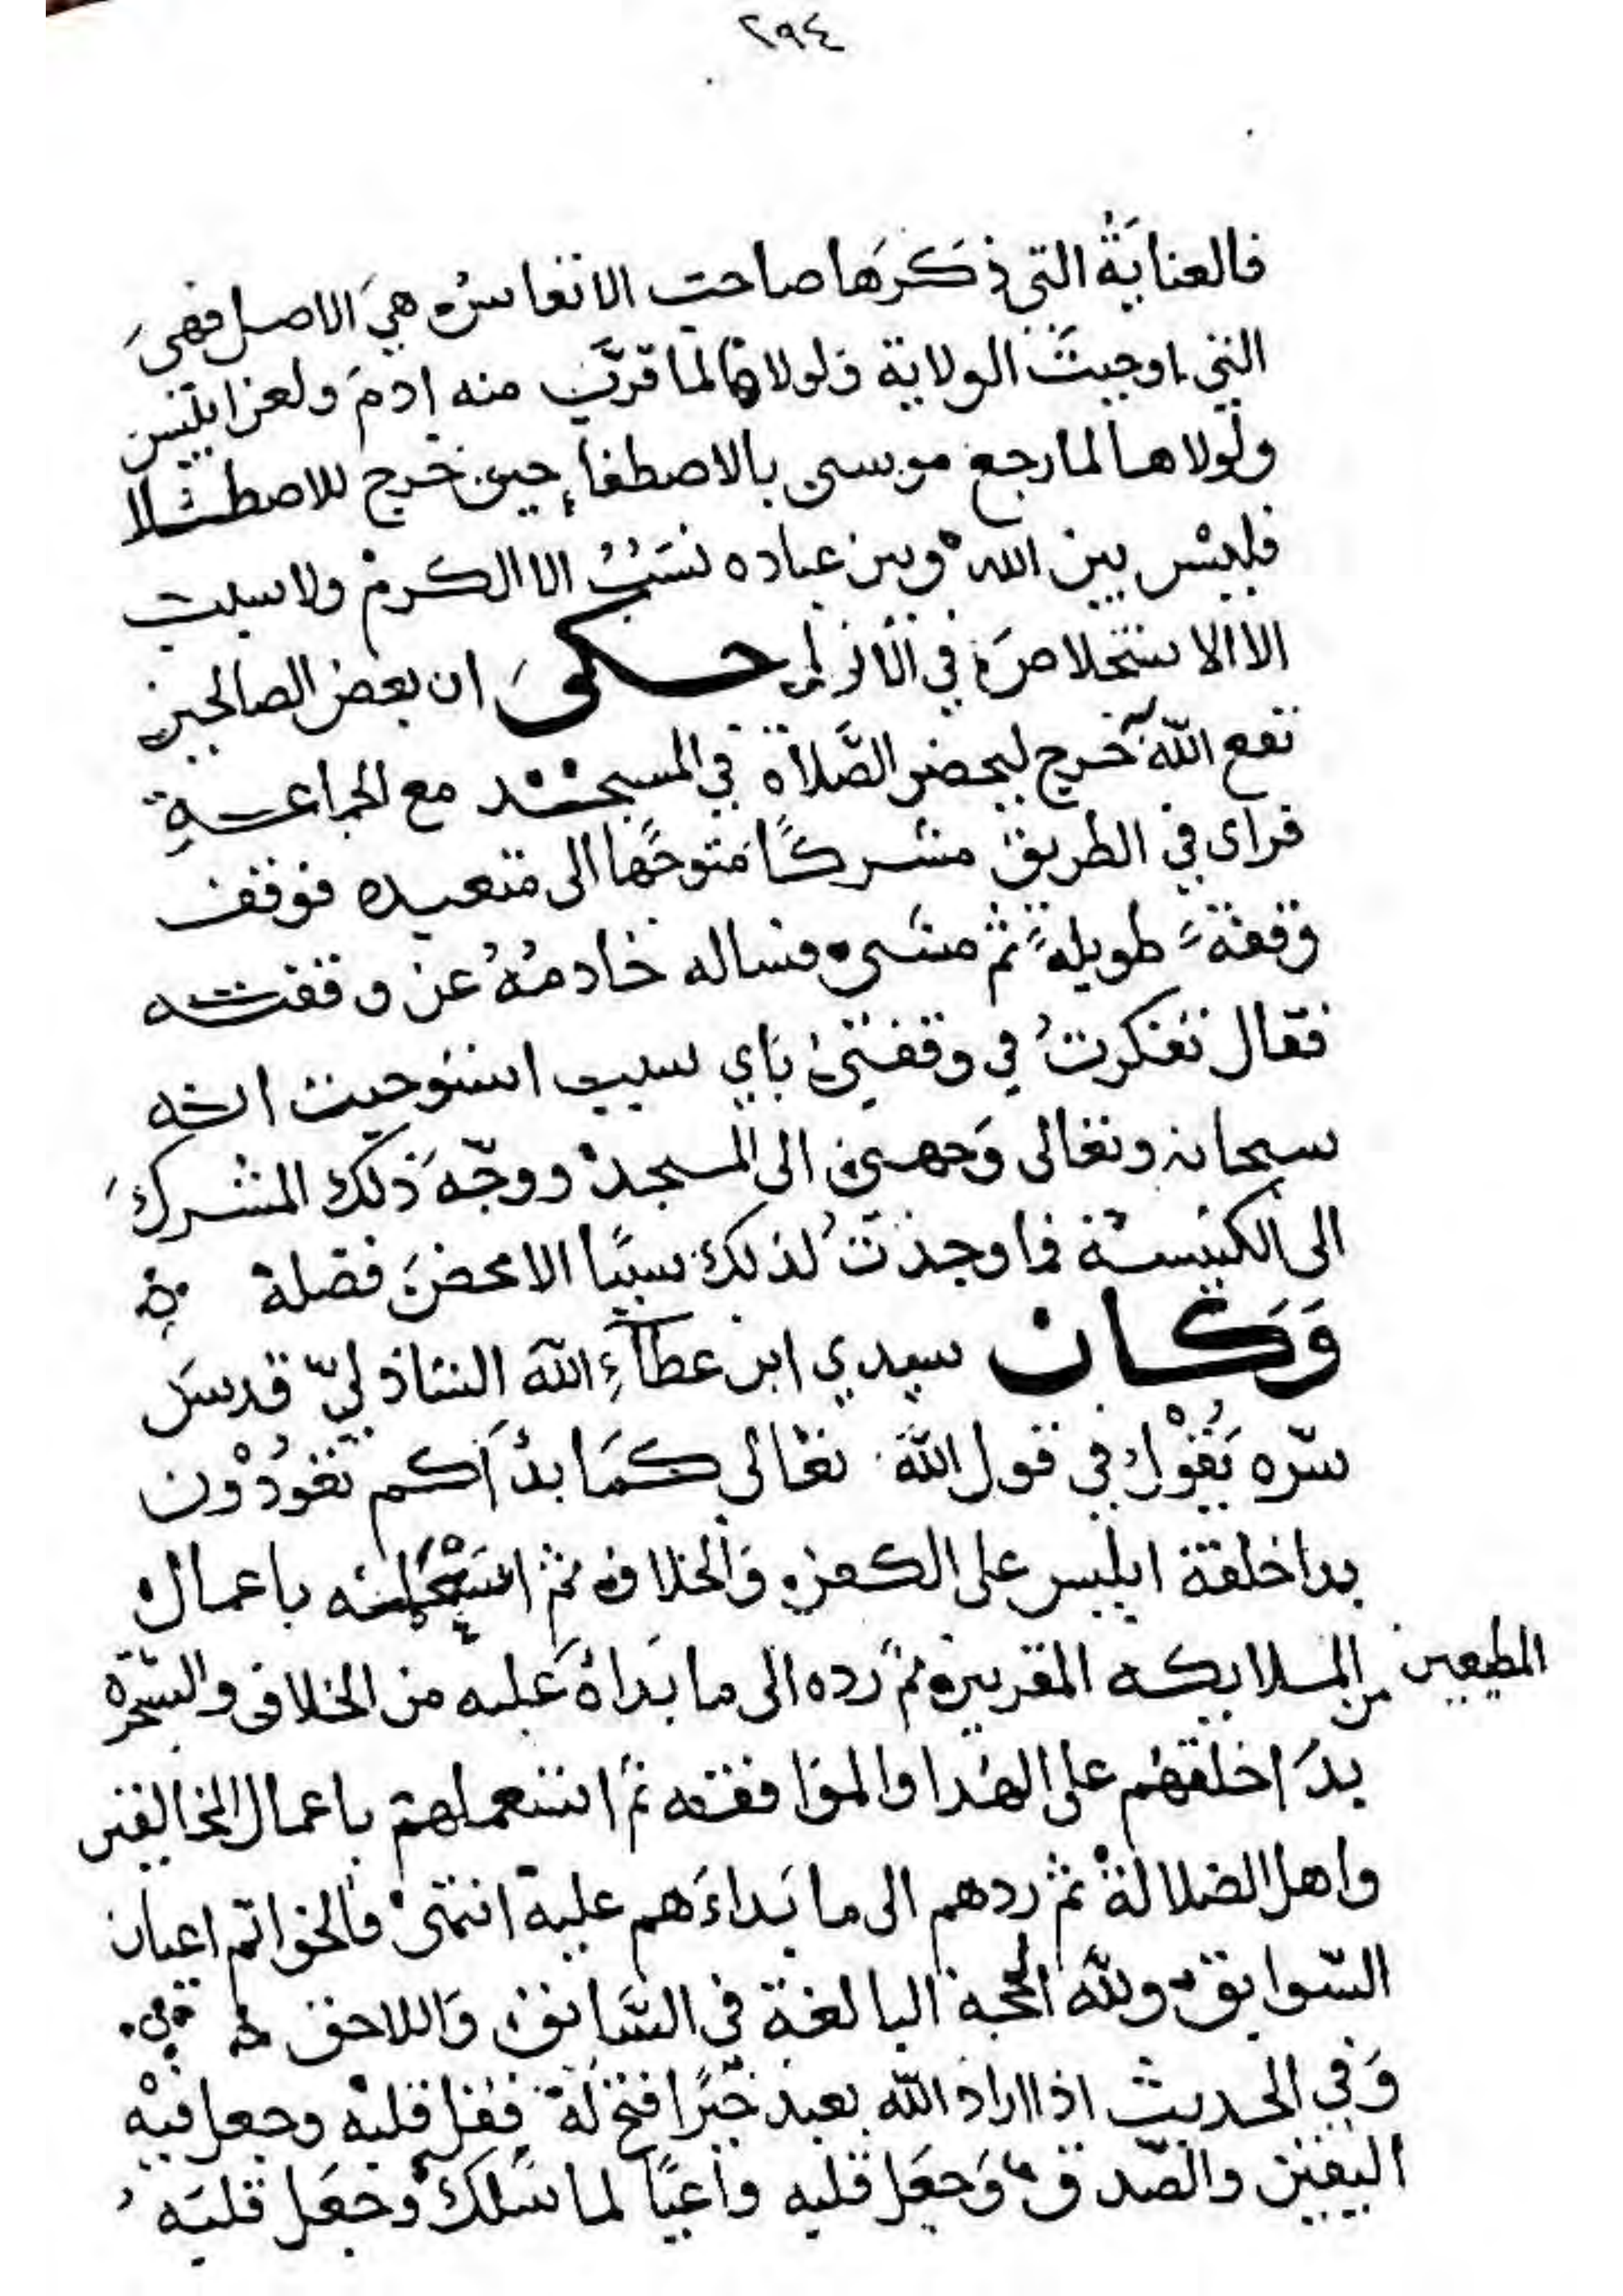 ٢٩٤
فالعنايَةُ التي ذكرَها صاحب الانفاس هيَ الاصل فهيَ
التي اوجبتَ الولاية ولولاها لما قرّب منه ادمَ ولعن ابليس
ولولاها لما رجع موسى بالاصطفاءِ حين خرج للاصطلا
فليس بين الله وبين عباده نسَبُ الا الكرم ولا سبب
الا الاستخلاص في الازلِ حكىَ ان بعض الصالحين
نفع الله خرج ليحضر الصَّلاة في المسجد مع الجماعةِ
فراى في الطريق مشركًا مَتوجّها الى متعبده فوقف
وقفة طويلة ثم مشى فساله خادمُهُ عن وقفته
فقال تفكرتُ في وقفتي باي سبب استوجبت الله
سبحانه وتعالى وَجهني الى المسجد ووجّهَ ذلك المشركَ
الى الكنيسة فما وجدتُ لذلك سببًا الا محض فضلة
وَكان سيدي ابن عطآءِ الله الشاذليّ قدسَ
سّره يَقُوْل في قول الله تعَالى كمَا بدَاَكم تعُودُوْن
بدا خلقة ابليس على الكفر والخلاف ثم استَعْملَه باعمال
المطيعين من الملايكه المقربين ثم رده الى ما بَداهُ عَليه من الخلاف والسّحرة
بدَا خلقهُم على الهُدا والموَافقه ثم استعملهم باعمال المخالفين
واهل الضلالة ثم ردهم الى ما بَداءَهم عليه انتهى فالخواتم اعيان
السّوابق ولله الحجة البالغة في السَّابق وَاللاحق
وَفي الحديث اذا اراد الله بعبد خيَرًا فتح لَهَ قفل قلبه وجعل فيه
اليقين والصّدق وَجعَل قلبه واعيًا لما سَلك وجعَل قلبَه